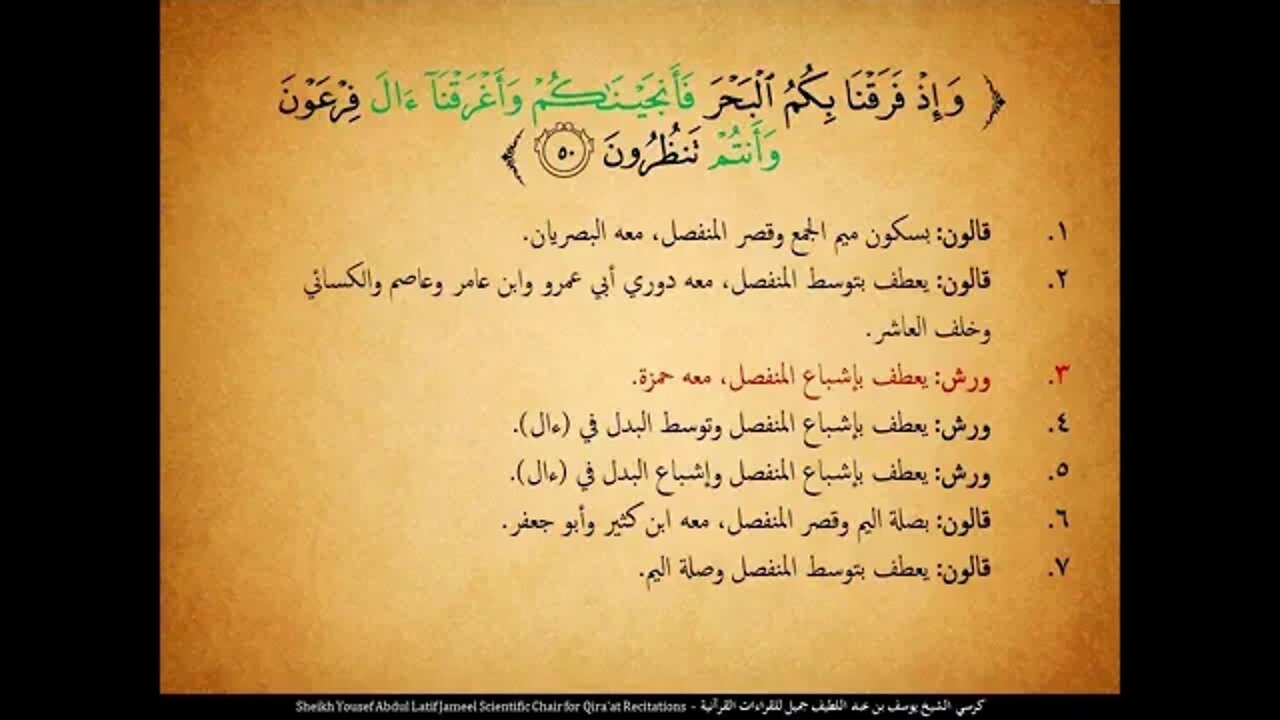 ﴿ وَإِذْ فَرَقْنَا بِكُمُ ٱلْبَحْرَ فَأَنجَيْنَـٰكُمْ وَأَغْرَقْنَآ ءَالَ فِرْعَوْنَ
وَأَنتُمْ تَنظُرُونَ ٥٠ ﴾
١. قالون: بسكون ميم الجمع وقصر المنفصل، معه البصريان.
٢. قالون: يعطف بتوسط المنفصل، معه دوري أبي عمرو وابن عامر وعاصم والكسائي
وخلف العاشر.
٣. ورش: يعطف بإشباع المنفصل، معه حمزة.
٤. ورش: يعطف بإشباع المنفصل وتوسط البدل في (ءال).
٥. ورش: يعطف بإشباع المنفصل وإشباع البدل في (ءال).
٦. قالون: بصلة اليم وقصر المنفصل، معه ابن كثير وأبو جعفر.
٧. قالون: يعطف بتوسط المنفصل وصلة اليم.
Sheikh Yousef Abdul Latif Jameel Scientific Chair for Qira'at Recitations - كرسي الشيخ يوسف بن عبد اللطيف جميل للقراءات القرآنية